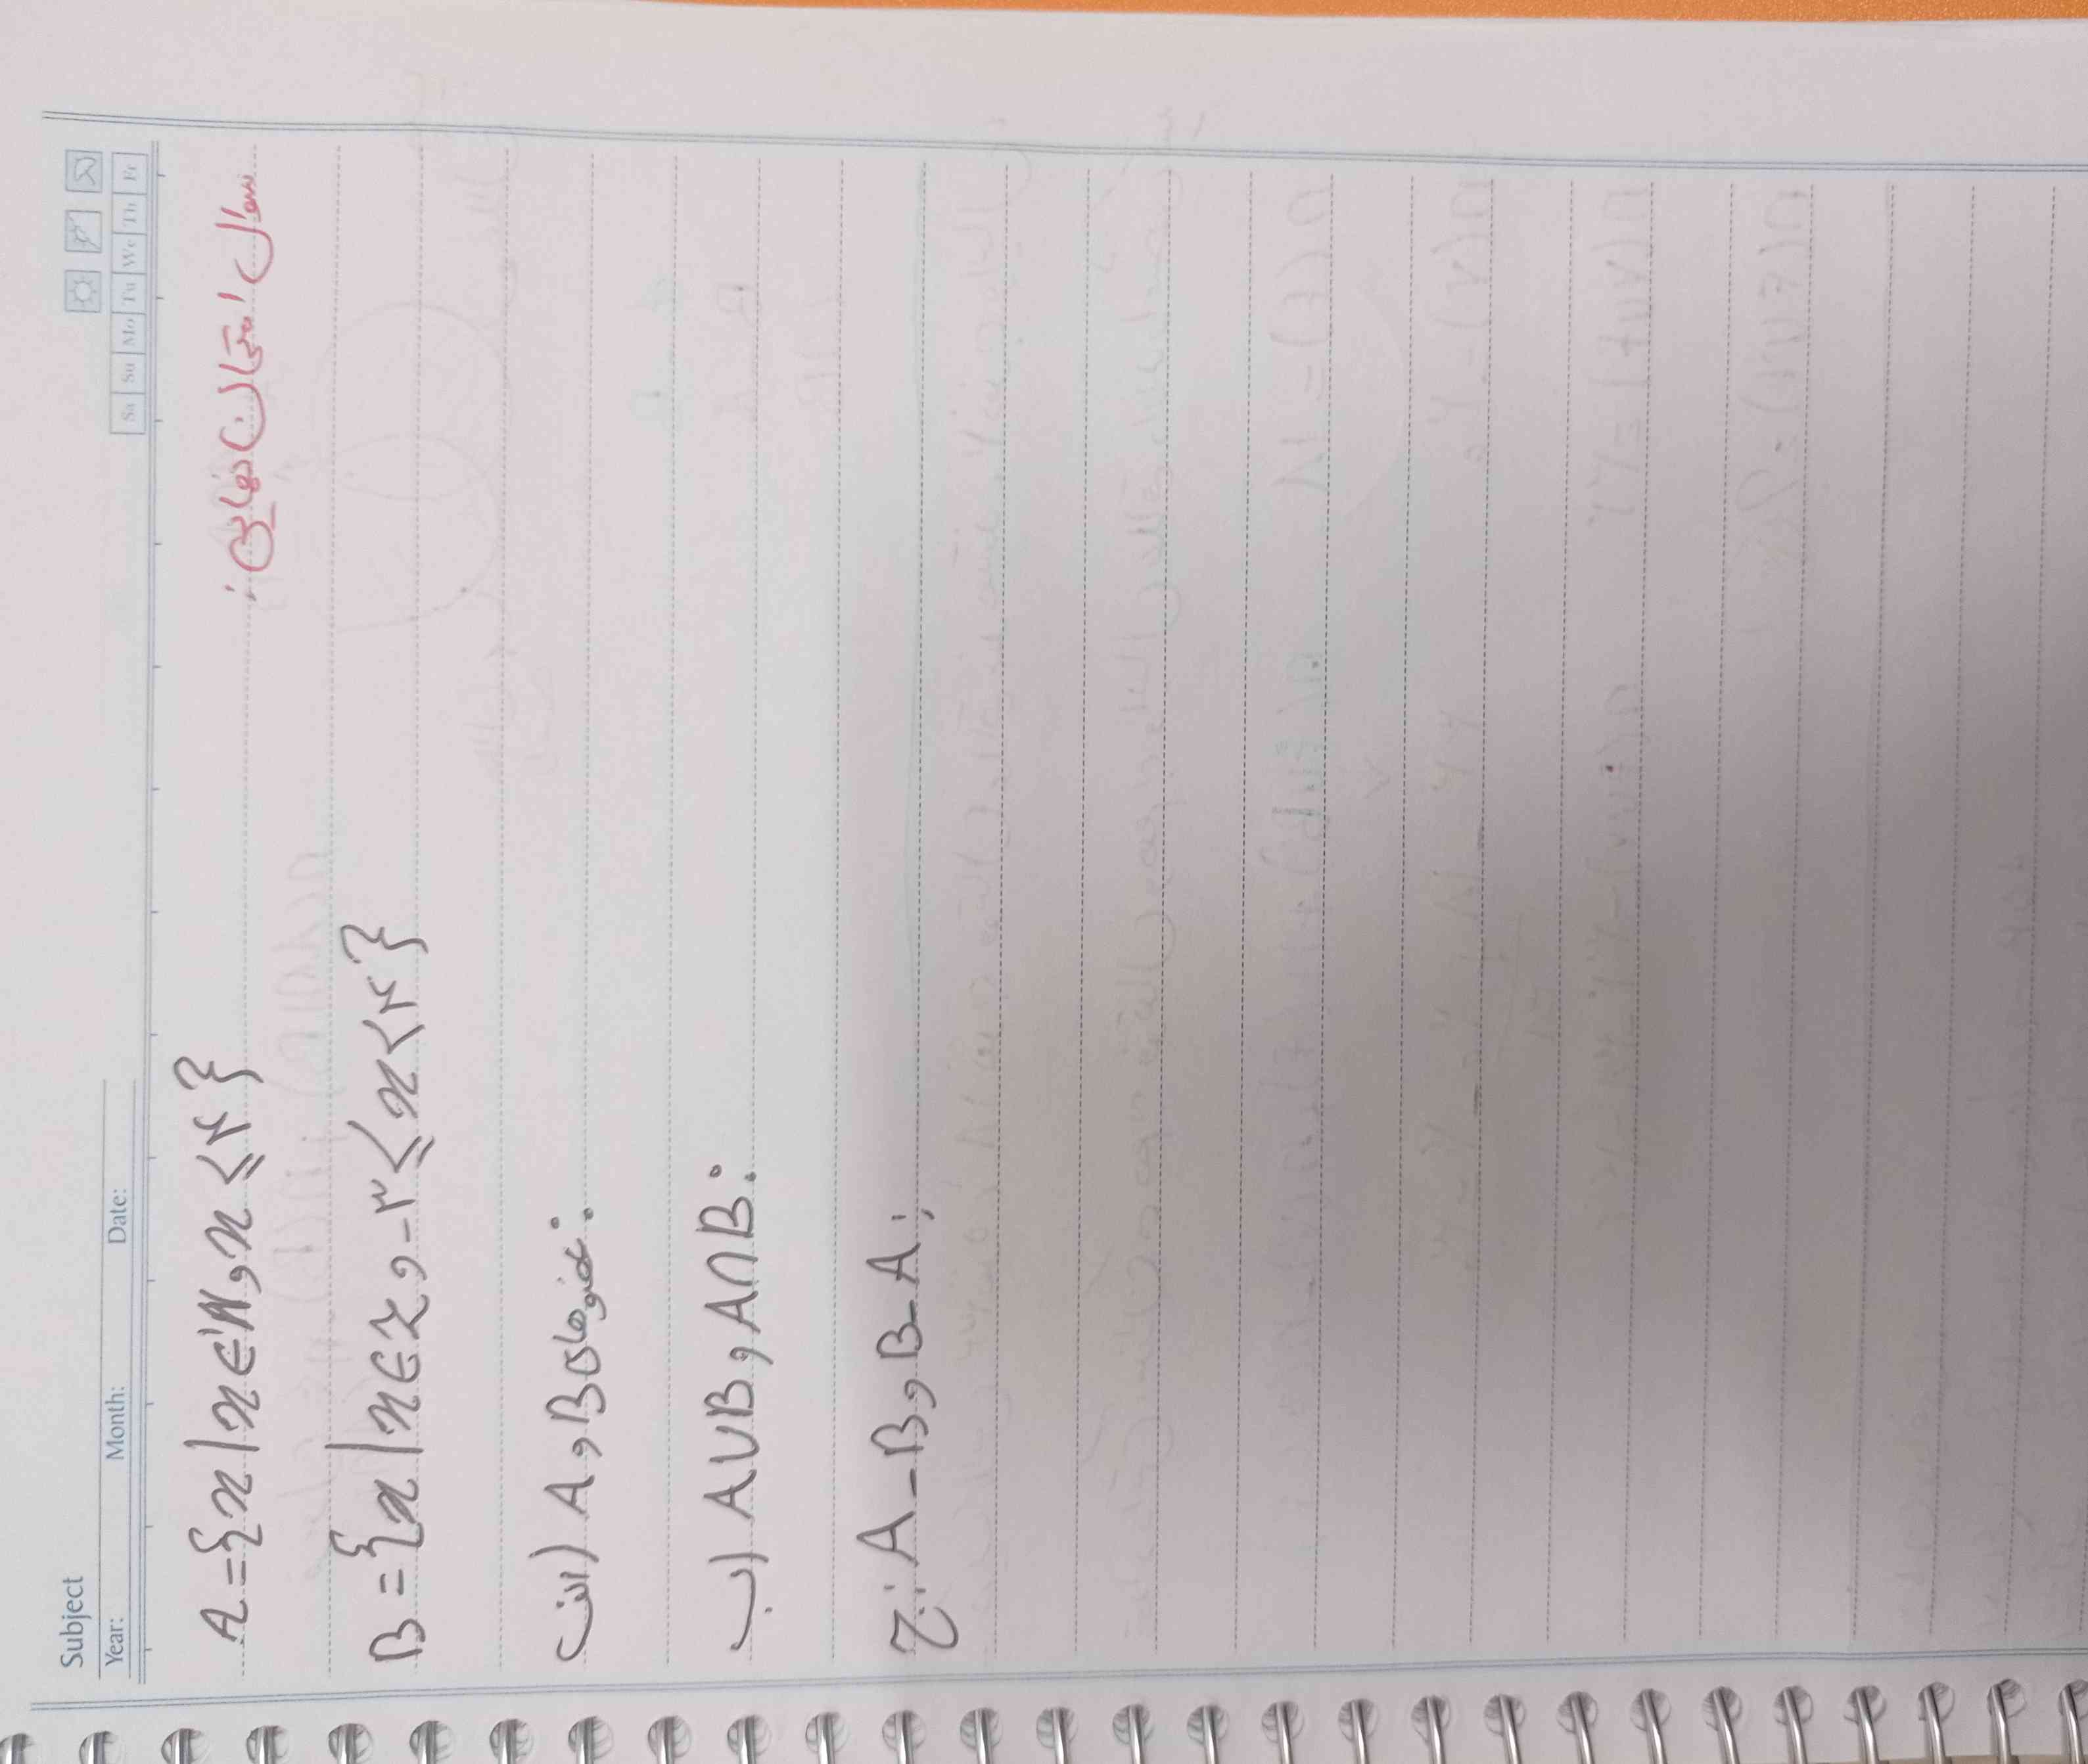 Subject
Year: Month: Date:
Sa Su Mo Tu We Th Fr
سوال امتحان نهایی:
A={x|x∈IN و x≤۴}
B={x|x∈Z و -۳≤x<۴}
الف) A و B عضوهای:
ب) A∪B و A∩B:
ج: A-B و B-A: